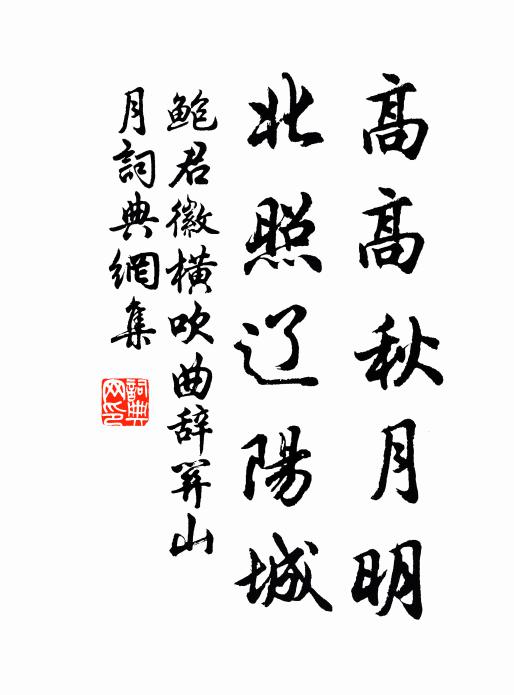 高高秋月明
北照辽陽城
鲍君徽橫吹曲辞関山
月詞典網集
詞典网印